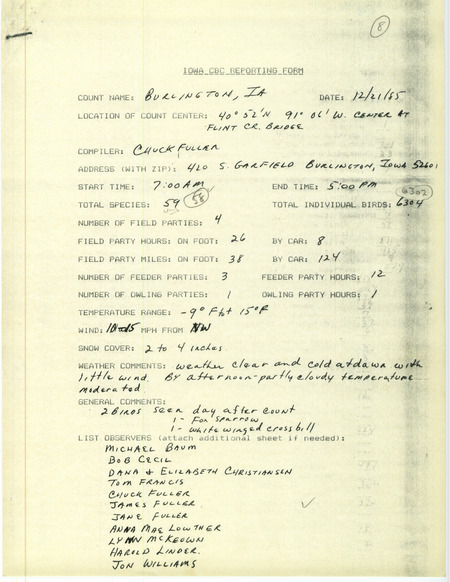 8
IOWA CBC REPORTING FORM
COUNT NAME: BURLINGTON, IA DATE: 12/21/85
LOCATION OF COUNT CENTER: 40° 52'N 91° 06'W. CENTER AT
FLINT CR. BRIDGE
COMPILER: CHUCK FULLER
ADDRESS (WITH ZIP): 420 S. GARFIELD BURLINGTON, IOWA 52601
START TIME: 7:00 AM END TIME: 5:00 PM
6302
TOTAL SPECIES: 59 58 TOTAL INDIVIDUAL BIRDS: 6304
NUMBER OF FIELD PARTIES: 4
FIELD PARTY HOURS: ON FOOT: 26 BY CAR: 8
FIELD PARTY MILES: ON FOOT: 38 BY CAR: 124
NUMBER OF FEEDER PARTIES: 3 FEEDER PARTY HOURS: 12
NUMBER OF OWLING PARTIES: 1 OWLING PARTY HOURS: 1
TEMPERATURE RANGE: -9° F to + 15°F
WIND: 10-15 MPH FROM NW
SNOW COVER: 2 to 4 inches
WEATHER COMMENTS: weather clear and cold at dawn with
little wind. BY afternoon partly cloudy temperature
moderated
GENERAL COMMENTS:
2 BIRDS seen day after count
1- Fox sparrow
1- white winged crossbill
LIST OBSERVERS (attach additional sheet if needed):
MICHAEL BAUM
BOB CECIL
DANA & ELIZABETH CHRISTIANSEN
TOM FRANCIS
CHUCK FULLER
JAMES FULLER
JANE FULLER
ANNA MAE LOWTHER
LYNN MCKEOWN
HAROLD LINDER.
JON WILLIAMS